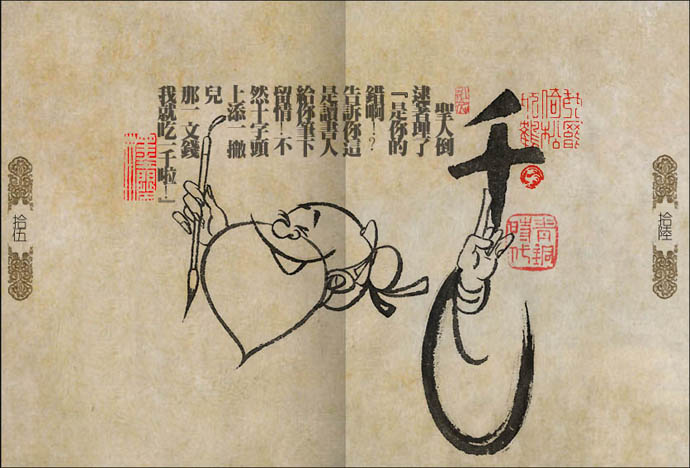 拾陸
千
青銅時代
聖人倒
逮著理了
『是你的
錯啊！？
告訴你這
是讀書人
給你筆下
留情！不
然十字頭
上添一撇
兒
那一文錢
我就吃一千啦！』
拾伍